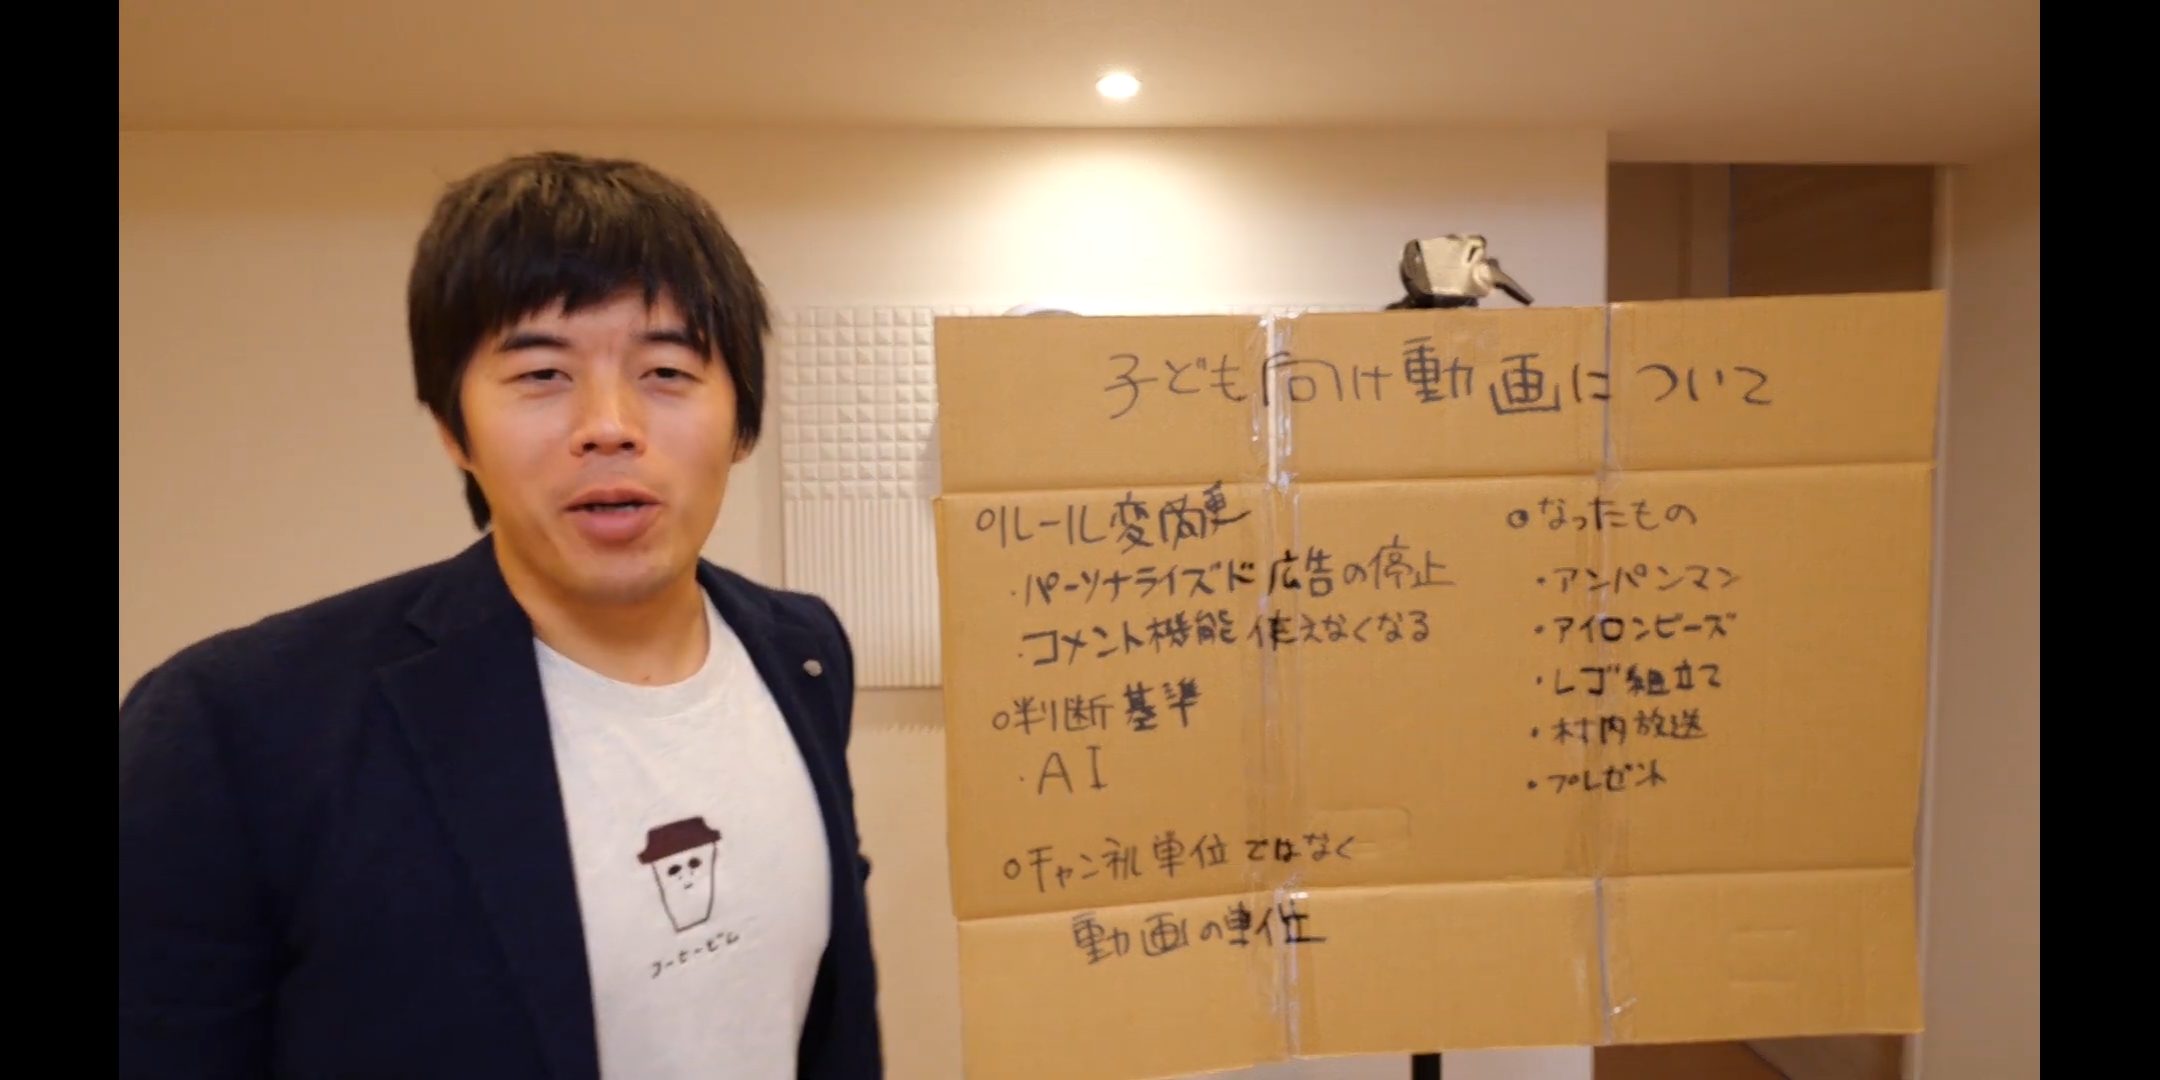 子ども向け動画について
○ルール変更
・パーソナライズド広告の停止
・コメント機能使えなくなる
○判断基準
・AI
○チャンネル単位ではなく
動画の単位
○なったもの
・アンパンマン
・アイロンビーズ
・レゴ組立て
・村内放送
・プレゼント
コーヒービム